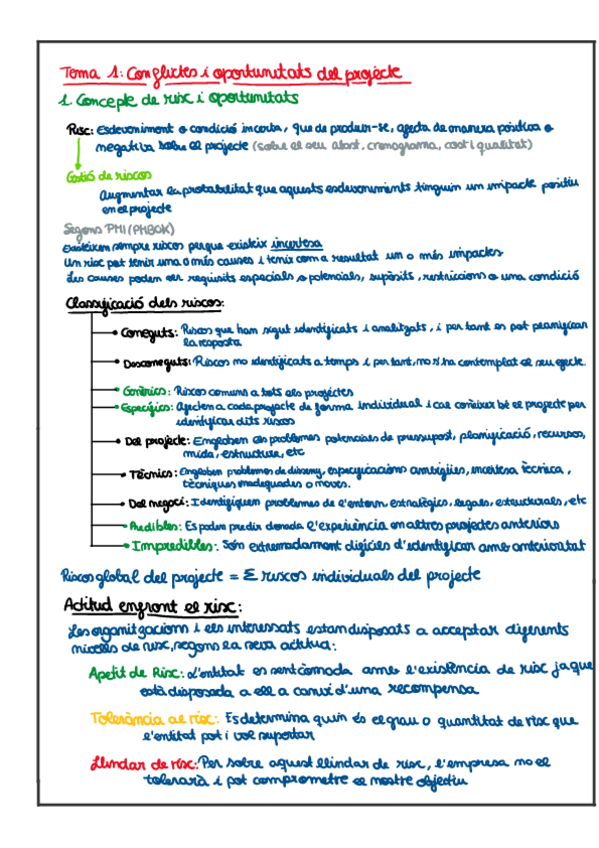 Tema 1: Conflictes i oportunitats del projecte
1. Concepte de risc i oportunitats
Risc: Esdeveniment o condició incerta, que de produir-se, afecta de manera positiva o
negativa sobre el projecte (sobre el seu abast, cronograma, cost i qualitat)
Gestió de riscos
Augmentar la probabilitat que aquests esdeveniments tinguin un impacte positiu
en el projecte
Segons PMI (PMBOK)
Existeixen sempre riscos perque existeix incertesa
Un risc pot tenir una o més causes i tenir com a resultat un o més impactes
Les causes poden ser requisits especials o potencials, supòsits, restriccions o una condició
Classificació dels riscos:
Coneguts: Riscos que han sigut identificats i analitzats, i per tant es pot planificar
la resposta
Desconeguts: Riscos no identificats a temps i per tant, no s'ha contemplat el seu efecte.
Genèrics: Riscos comuns a tots els projectes
Específics: Afecten a cada projecte de forma individual i cal conèixer bé el projecte per
identificar dits riscos
Del projecte: Engloben els problemes potencials de pressupost, planificació, recursos,
mida, estructura, etc
Tècnics: Engloben problemes de disseny, especificacions ambigües, incertesa tècnica,
tècniques inadequades o noves.
Del negoci: Identifiquen problemes de l'entorn, estratègics, legals, estructurals, etc
Predibles: Es poden predir donada l'experiència en altres projectes anteriors
Impredibles: Són extremadament difícils d'identificar amb anterioritat
Riscos global del projecte = Σ riscos individuals del projecte
Actitud enfront el risc:
Les organitzacions i els interessats estan disposats a acceptar diferents
nivells de risc, segons la seva actitud:
Apetit de Risc: L'entitat es sent còmoda amb l'existència de risc ja que
està disposada a ell a canvi d'una recompensa
Tolerància al risc: Es determina quin és el grau o quantitat de risc que
l'entitat pot i vol suportar
Llindar de risc: Per sobre aquest llindar de risc, l'empresa no el
tolerarà i pot comprometre el nostre objectiu